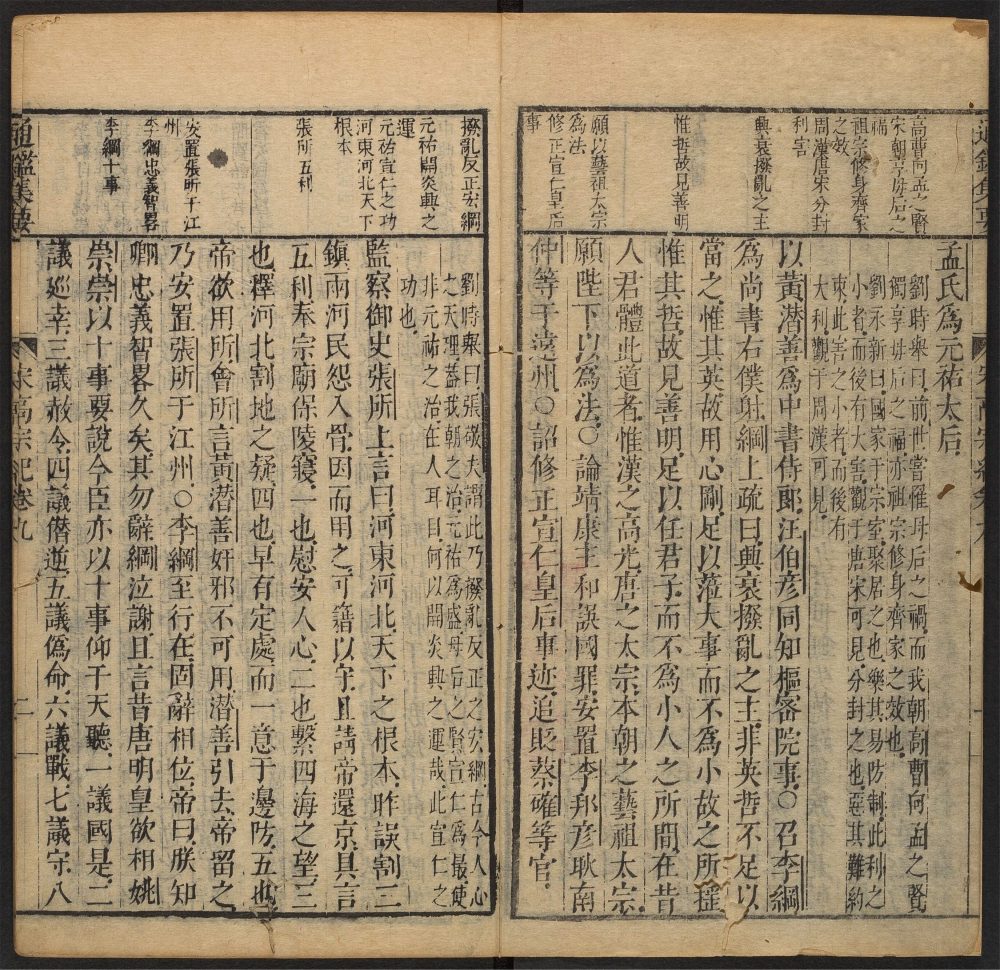 高曹向孟之賢
宋朝享母后之
福
祖宗修身齊家
之效
周漢唐宋分封
利害
興衰撥亂之主
惟哲故見善明
願以藝祖太宗
為法
修正宣仁皇后
事
孟氏為元祐太后
劉時舉曰前世嘗惟母后之禍而我朝高曹向孟之賢
獨享母后之福亦祖宗修身齊家之效也
劉永新曰國家于宗室聚居之也樂其易防制此利之
小者而後有大害觀于唐宋可見分封之也惡其難約
束此害之小者而後有
大利觀于周漢可見
以黃潛善為中書侍郎汪伯彥同知樞密院事○召李綱
為尚書右僕射綱上疏曰興衰撥亂之主非英哲不足以
當之惟其英故用心剛足以蒞大事而不為小故之所搖
惟其哲故見善明足以任君子而不為小人之所間在昔
人君體此道者惟漢之高光唐之太宗本朝之藝祖太宗
願陛下以為法○論靖康主和誤國罪安置李邦彥耿南
仲等于遠州○詔修正宣仁皇后事迹追貶蔡確等官
撥亂反正宏綱
元祐開炎興之
運
元祐宣仁之功
河東河北天下
根本
張所五利
安置張所于江
州
李綱忠義智畧
李綱十事
劉時舉曰張敬夫謂此乃撥亂反正之宏綱古今人心
之天理蓋我朝之治元祐為盛母后之賢宣仁為最使
非元祐之治在人耳目何以開炎興之運哉此宣仁之
功也
監察御史張所上言曰河東河北天下之根本昨誤割三
鎮兩河民怨入骨因而用之可籍以守且請帝還京具言
五利奉宗廟保陵寢一也慰安人心二也繫四海之望三
也釋河北割地之疑四也早有定處而一意于邊防五也
帝欲用所會所言黃潛善奸邪不可用潛善引去帝留之
乃安置張所于江州○李綱至行在固辭相位帝曰朕知
卿忠義智畧久矣其勿辭綱泣謝且言昔唐明皇欲相姚
崇崇以十事要說今臣亦以十事仰干天聽一議國是二
議巡幸三議赦令四議僭逆五議偽命六議戰七議守八
通鑑集要
宋高宗紀卷九
二